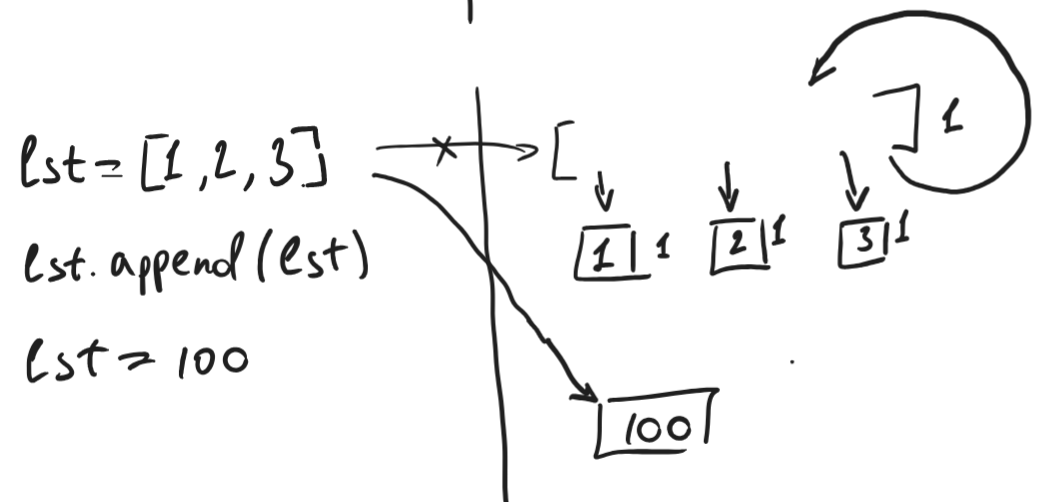 lst = [1, 2, 3]
lst.append(lst)
lst = 100
[ ] 1
1 1 2 1 3 1
100